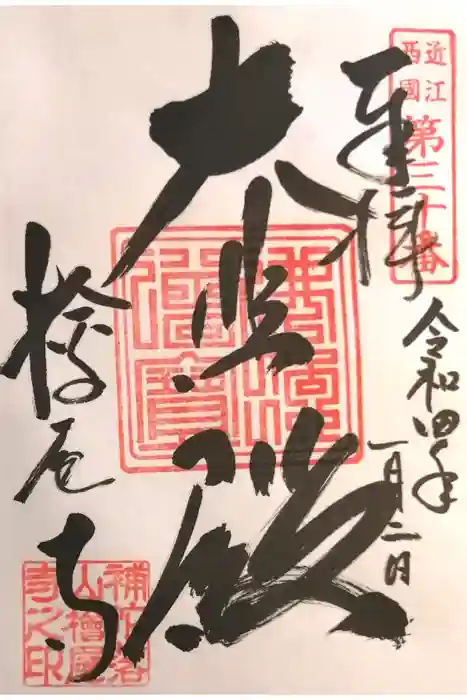 近江
西國
第三十番
奉拝
令和四年
一月二日
大悲殿
佛法
僧寶
桧尾寺
補陀洛
山檜尾
寺之印